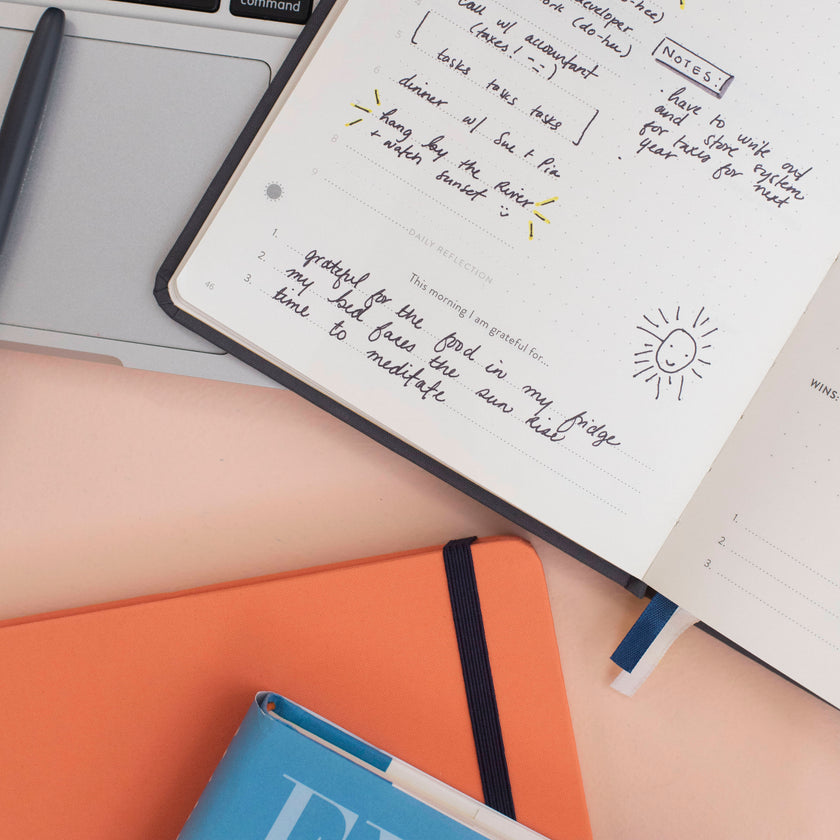 command
developer
work (do-hee)
4
call w/ accountant
5
(taxes! --)
tasks tasks tasks
6
dinner w/ Sue + Pia
hang by the River
8
+ watch sunset
9
NOTES:
· have to write out
and store system
for taxes for next
year
DAILY REFLECTION
This morning I am grateful for...
1. grateful for the food in my fridge
2. my bed faces the sun rise
3. time to meditate
46
WINS:
1.
2.
3.